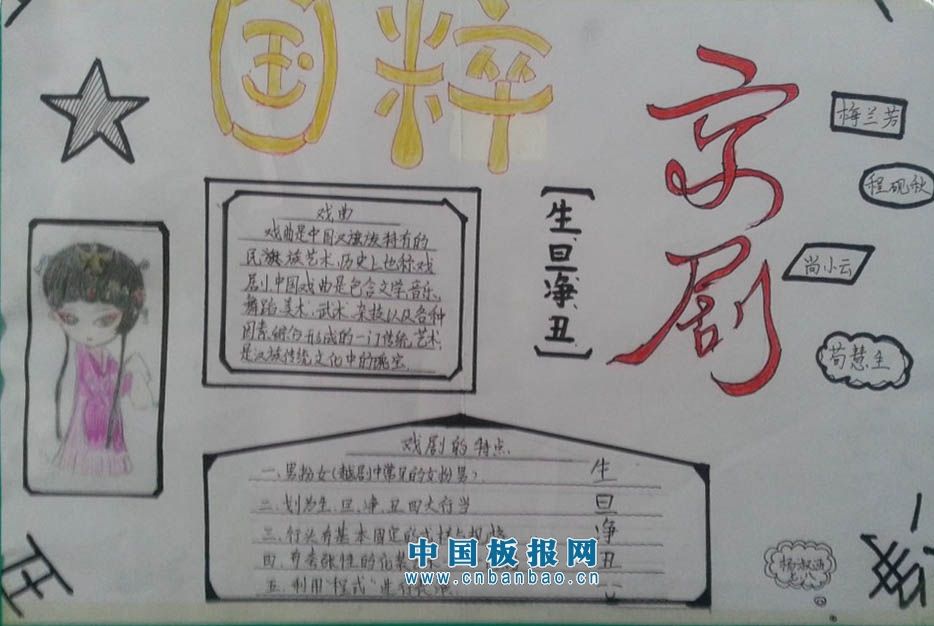 国粹
京剧
梅兰芳
程砚秋
尚小云
荀慧生
【生、旦、净、丑】
戏曲
戏曲是中国汉族族特有的
民族族艺术,历史上也称戏
剧。中国戏曲是包含文学、音乐、
舞蹈、美术、武术、杂技以及各种
因素综合形成的一门传统艺术,
是汉族传统文化中的瑰宝.
戏剧的特点
一、男扮女(越剧中常见的女扮男)
二、划为生、旦、净、丑四大行当
三、行头有基本固定的
四、有夸张性的化装艺术
五、利用“程式”进行表演.
生
旦
净
丑
中国板报网
www.cnbanbao.cn